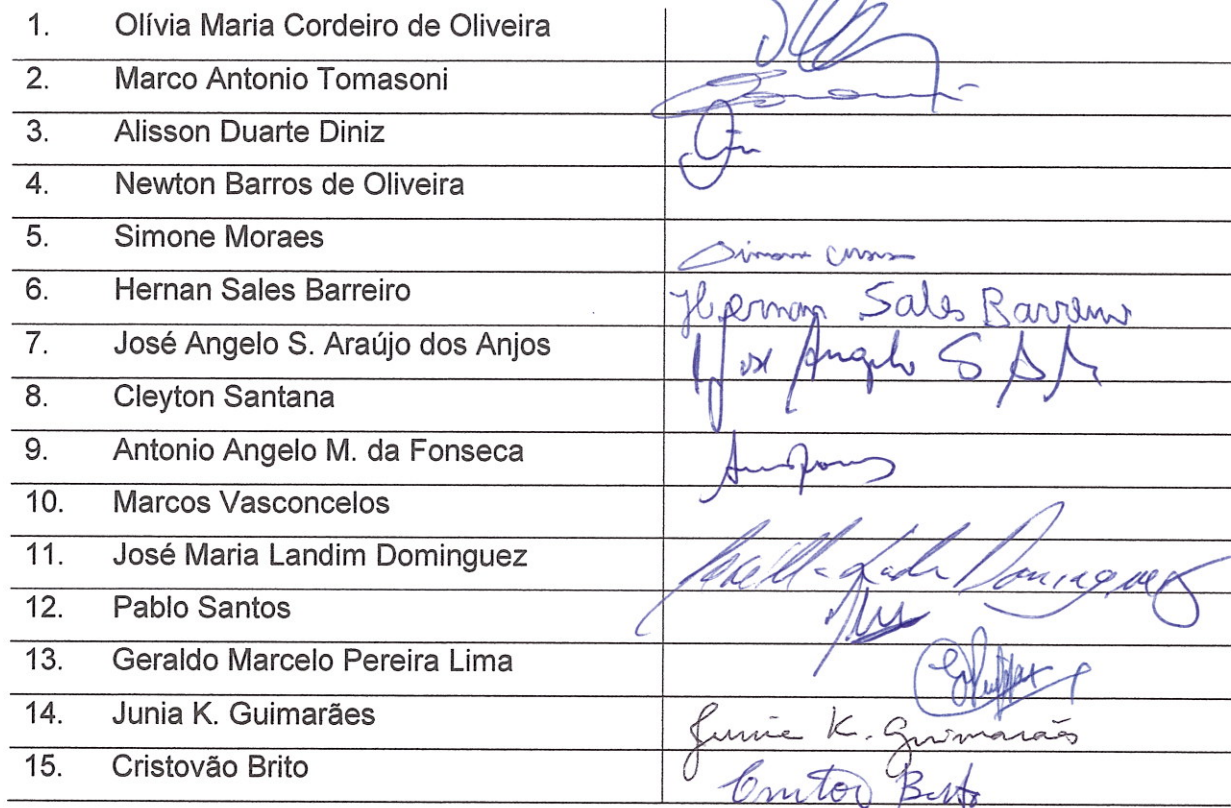 1. Olívia Maria Cordeiro de Oliveira
2. Marco Antonio Tomasoni
3. Alisson Duarte Diniz
4. Newton Barros de Oliveira
5. Simone Moraes Simone
6. Hernan Sales Barreiro Hernan Sales Barreiro
7. José Angelo S. Araújo dos Anjos José Angelo S A A
8. Cleyton Santana
9. Antonio Angelo M. da Fonseca
10. Marcos Vasconcelos
11. José Maria Landim Dominguez Dominguez
12. Pablo Santos
13. Geraldo Marcelo Pereira Lima
14. Junia K. Guimarães Junia K. Guimarães
15. Cristovão Brito Brito